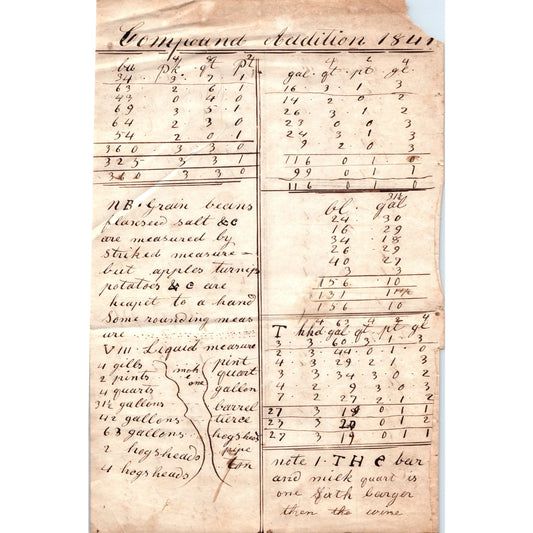 Compound Addition 1841
4 8 2
bu pk. qt pt
34 3 7 1
63 2 6 1
43 0 4 0
69 3 5 1
64 2 3 0
54 2 0 1
360 3 3 0
325 3 3 1
360 3 3 0
NB. Grain beans
flaxseed salt &c
are measured by
striked measure -
but apples turneps
potatoes & c are
heapit to a hand
Some rounding meas
ure
VIII. Liquid measure
4 gills make one pint
2 pints quart
4 quarts gallon
31½ gallons barrel
42 gallons tierce
63 gallons hogshead
2 hogsheads pipe
4 hogsheads ton
4 2 4
gal. qt pt gl
16 3 1 3
14 2 0 2
26 3 1 2
23 0 0 3
24 3 1 3
9 2 0 3
116 0 1 0
99 0 1 1
116 0 1 0
31½
bl. gal
24 30
16 29
34 18
26 29
40 29
3 3
156 10
131
156 10
4 63 4 2 4
T hhd gal qt pt gl
3 3 60 3 1 3
2 3 44 0 1 0
4 3 29 2 1 3
3 3 34 3 0 2
4 2 9 3 0 3
7 2 27 2 1 2
27 3 19 0 1 1
23 3 20 0 1
27 3 19 0 1 1
note 1. THe bar
and milk quart is
one Sixth barger
then the wine